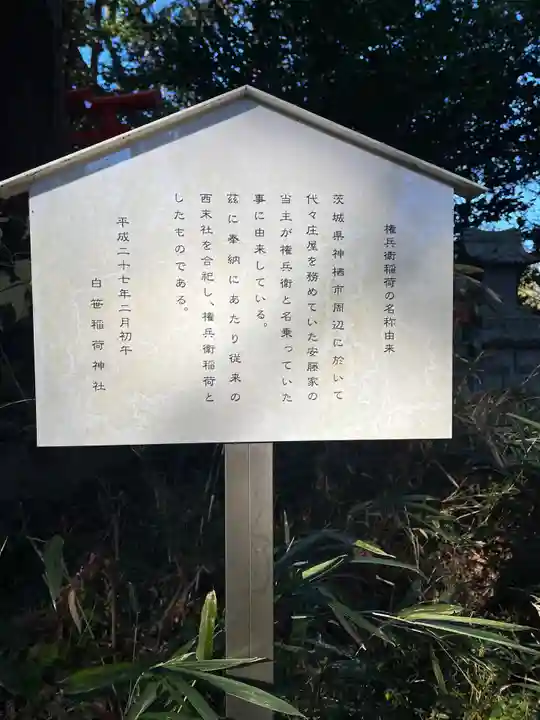 権兵衛稲荷の名称由来
茨城県神栖市周辺に於いて
代々庄屋を務めていた安藤家の
当主が権兵衛と名乗っていた
事に由来している。
茲に奉納にあたり従来の
西末社を合祀し、権兵衛稲荷と
したものである。
平成二十七年二月初午
白笹稲荷神社